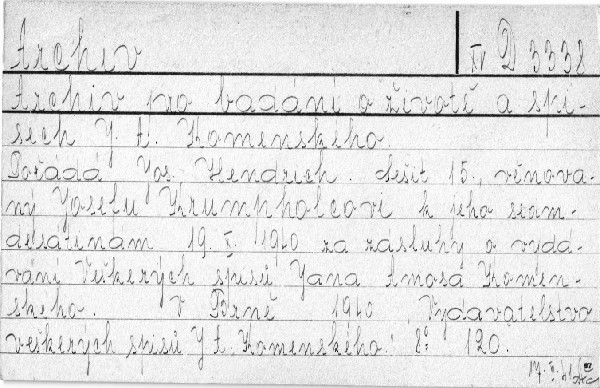 Archiv IV D 3338
Archiv pro badání o životě a spi-
sech J. A. Komenského.
Pořádá Jos. Hendrich. Sešit 15., věnova-
ný Josefu Krumpholcovi k jeho sedm-
desátinám 19. X. 1940 za zásluhy o vydá-
vání Veškerých spisů Jana Amosa Komen-
ského. V Brně 1940. Vydavatelstvo
veškerých spisů J. A. Komenského. 8° 120.